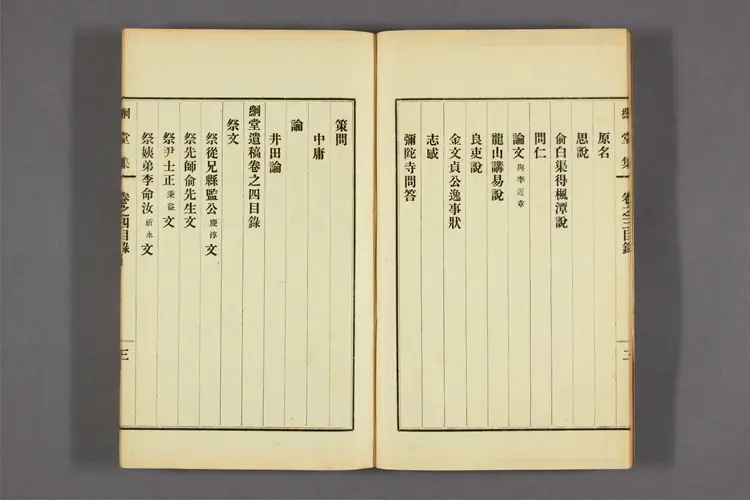 絅堂集 卷之三目錄 二
原名
思說
俞白渠得楓潭說
問仁
論文 與李近章
龍山講易說
良吏說
金文貞公逸事狀
志感
彌陀寺問答
策問
中庸
論
井田論
絅堂遺稿卷之四目錄
祭文
祭從兄縣監公 慶淳 文
祭先師俞先生文
祭尹士正 秉益 文
祭姨弟李命汝 新永 文
絅堂集 卷之四目錄 三